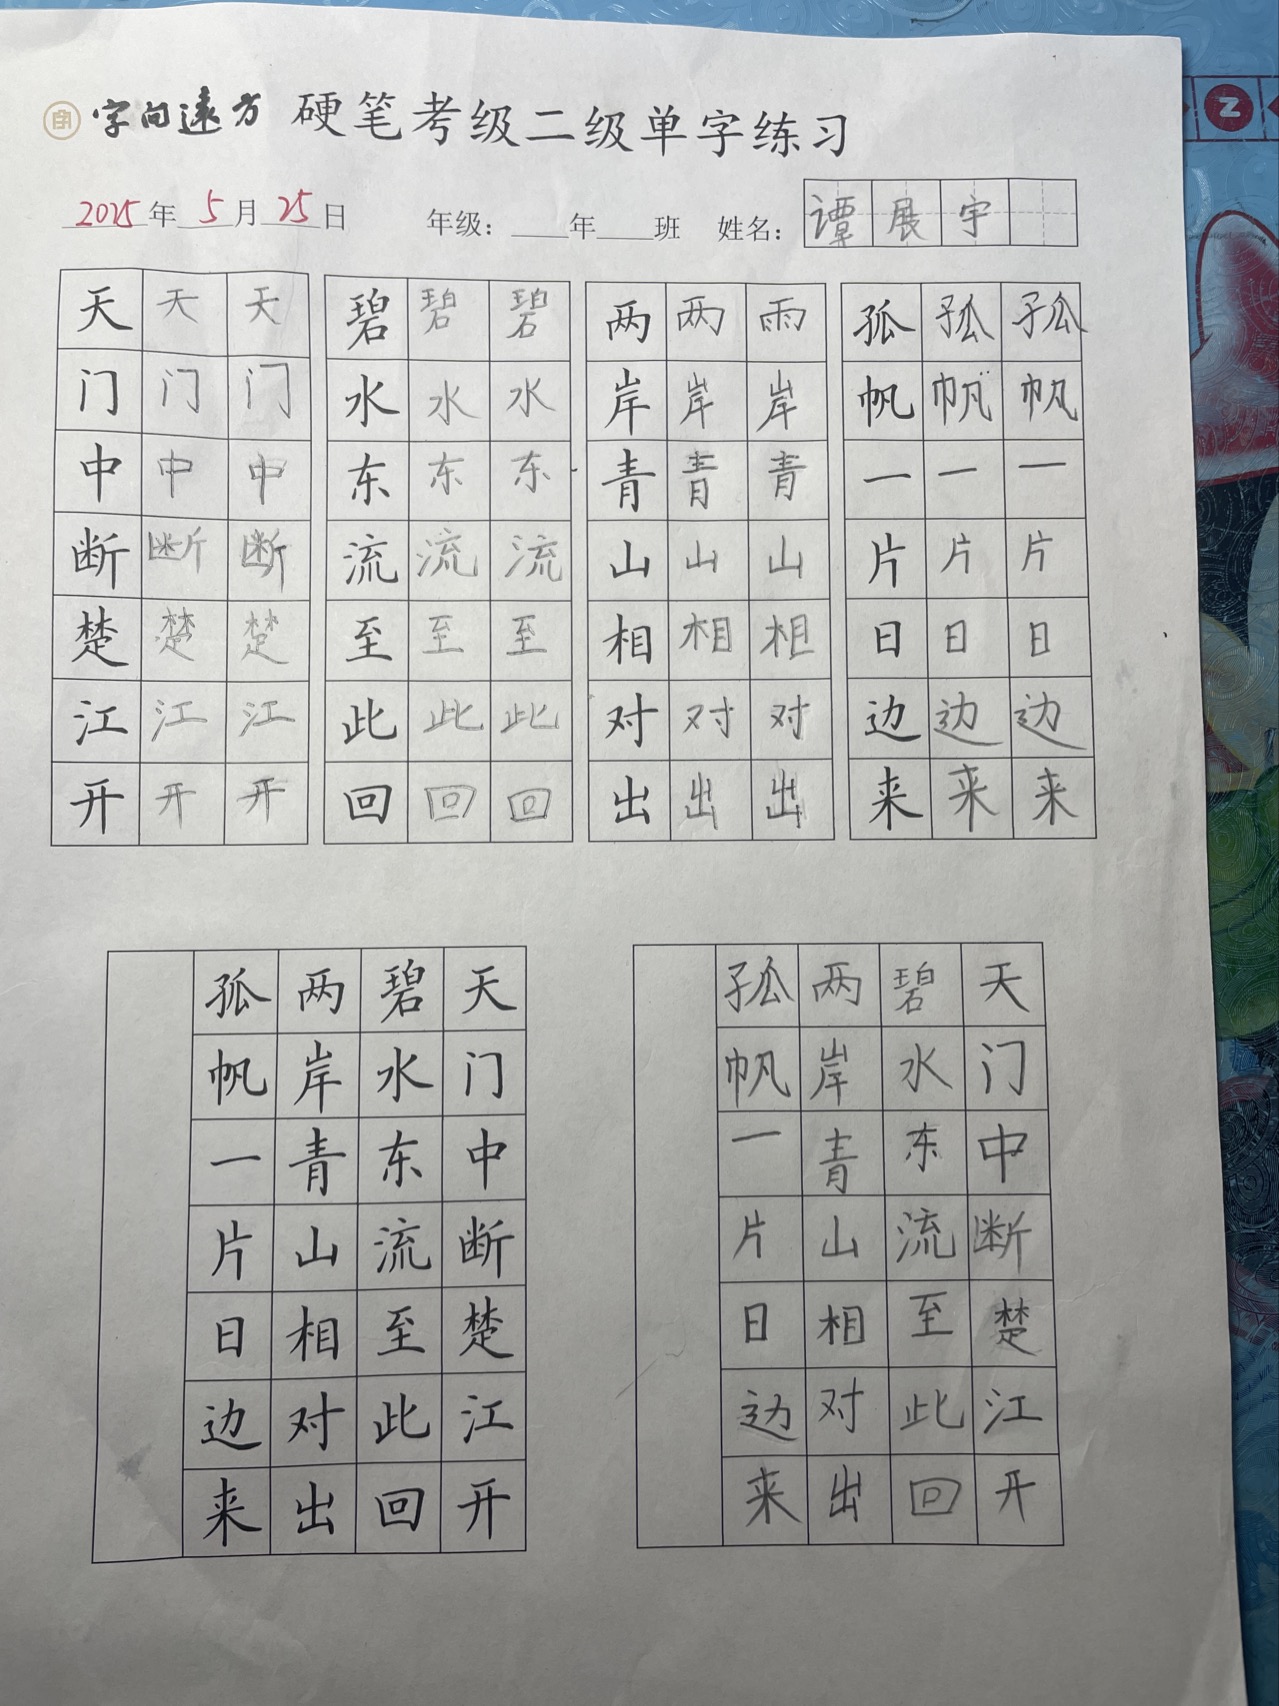 字 字向远方 硬笔考级二级单字练习
2025年 5月 25日 年级：__年__班 姓名：谭展宇
天天天 碧碧碧 两两雨 孤孤孤
门门门 水水水 岸岸岸 帆帆帆
中中中 东东东 青青青 一一一
断断断 流流流 山山山 片片片
楚楚楚 至至至 相相相 日日日
江江江 此此此 对对对 边边边
开开开 回回回 出出出 来来来
天门中断楚江开
碧水东流至此回
两岸青山相对出
孤帆一片日边来
天门中断楚江开
碧水东流至此回
两岸青山相对出
孤帆一片日边来
Z